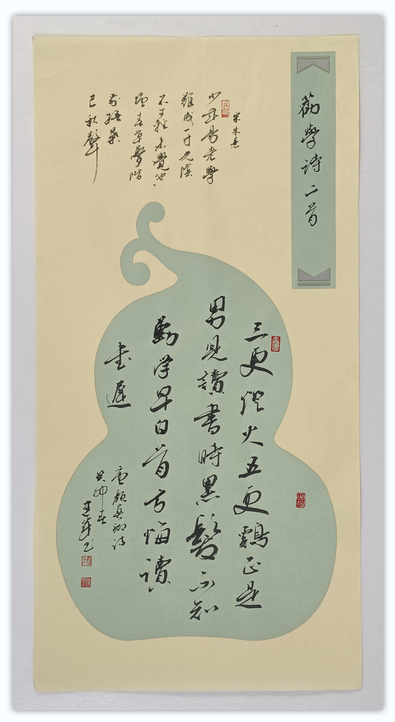 勸學诗二首
宋朱熹
少年易老學
難成一寸光陰
不可輕未覺池
塘春草夢階
前梧葉
已秋聲
三更燈火五更鷄正是
男兒讀書時黑髮不知
勤学早白首方悔讀
書遲
唐顔真卿诗
癸卯春